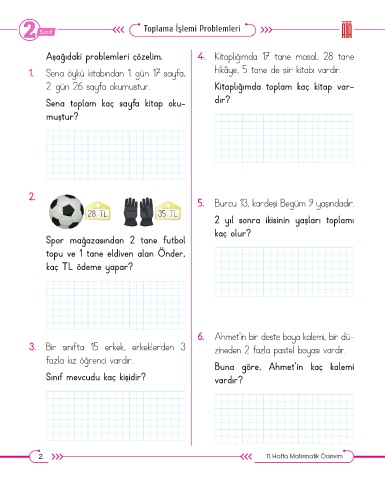 2. Sınıf
Toplama İşlemi Problemleri
Aşağıdaki problemleri çözelim.
1. Sena öykü kitabından 1. gün 17 sayfa,
2. gün 26 sayfa okumuştur.
Sena toplam kaç sayfa kitap oku-
muştur?
2.
28 TL
35 TL
Spor mağazasından 2 tane futbol
topu ve 1 tane eldiven alan Önder,
kaç TL ödeme yapar?
3. Bir sınıfta 15 erkek, erkeklerden 3
fazla kız öğrenci vardır.
Sınıf mevcudu kaç kişidir?
4. Kitaplığımda 17 tane masal, 28 tane
hikâye, 5 tane de şiir kitabı vardır.
Kitaplığımda toplam kaç kitap var-
dır?
5. Burcu 13, kardeşi Begüm 9 yaşındadır.
2 yıl sonra ikisinin yaşları toplamı
kaç olur?
6. Ahmet'in bir deste boya kalemi, bir dü-
zineden 2 fazla pastel boyası vardır.
Buna göre, Ahmet'in kaç kalemi
vardır?
2
11. Hafta Matematik Ödevim